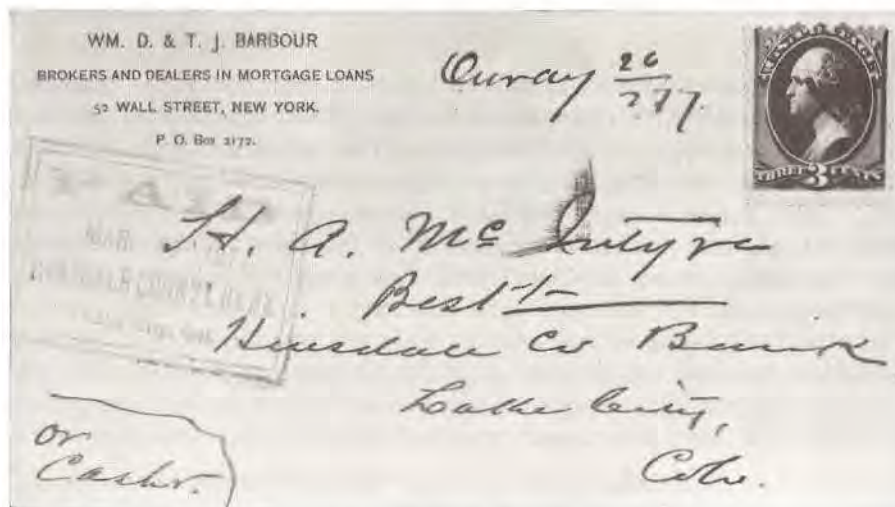 WM. D. & T. J. BARBOUR
BROKERS AND DEALERS IN MORTGAGE LOANS
52 WALL STREET, NEW YORK.
P. O. Box 2172.
Ouray 26
2 77.
U.S. POSTAGE
THREE 3 CENTS
PAID
MAR
HINSDALE COUNTY BANK
H. A. McIntyre
Hinsdale Co Bank
Lake City,
Colo.
or
Cashr.